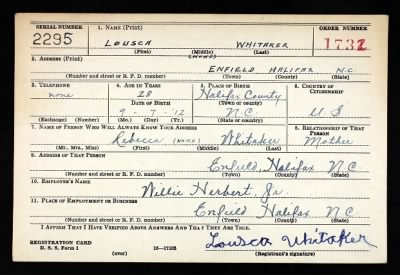 SERIAL NUMBER 1. NAME (Print) ORDER NUMBER
2295 LOUSCA WHITAKER 1732
(First) (Middle) (Last)
(NONE)
2. ADDRESS (Print)
ENFIELD HALIFAX N.C.
(Number and street or R. F. D. number) (Town) (County) (State)
3. TELEPHONE 4. AGE IN YEARS 5. PLACE OF BIRTH 6. COUNTRY OF CITIZENSHIP
none 28 Halifax County
DATE OF BIRTH (Town or county)
9-7-12 N.C. U.S
(Exchange) (Number) (Mo.) (Day) (Yr.) (State or country)
7. NAME OF PERSON WHO WILL ALWAYS KNOW YOUR ADDRESS 8. RELATIONSHIP OF THAT PERSON
Rebecca (NONE) Whitaker Mother
(Mr., Mrs., Miss) (First) (Middle) (Last)
9. ADDRESS OF THAT PERSON
Enfield, Halifax N.C.
(Number and street or R. F. D. number) (Town) (County) (State)
10. EMPLOYER'S NAME
Willie Herbert, Jr.
11. PLACE OF EMPLOYMENT OR BUSINESS
Enfield Halifax N.C
(Number and street or R. F. D. number) (Town) (County) (State)
I AFFIRM THAT I HAVE VERIFIED ABOVE ANSWERS AND THAT THEY ARE TRUE.
Lousca Whitaker
REGISTRATION CARD
D. S. S. Form 1 16-17105 (Registrant's signature)
(over)